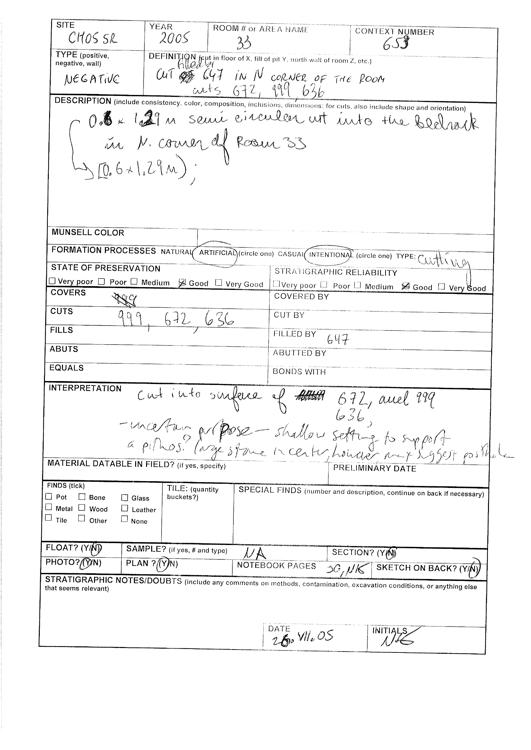 SITE YEAR ROOM # or AREA NAME CONTEXT NUMBER
CMOSSR 2005 33 653
TYPE (positive, negative, wall) DEFINITION (cut in floor of X, fill of pit Y, north wall of room Z, etc.)
NEGATIVE CUT filled by 647 IN N CORNER OF THE ROOM
cuts 672, 999, 636
DESCRIPTION (include consistency, color, composition, inclusions, dimensions: for cuts, also include shape and orientation)
0.6 x 1.29 m semi circular cut into the bedrock
in N. corner of Room 33
[0.6 x 1.29 m);
MUNSELL COLOR
FORMATION PROCESSES NATURAL ARTIFICIAL (circle one) CASUAL INTENTIONAL (circle one) TYPE: Cutting
STATE OF PRESERVATION STRATIGRAPHIC RELIABILITY
Very poor Poor Medium Good Very Good Very poor Poor Medium Good Very Good
COVERS 999 COVERED BY
CUTS 999, 672, 636 CUT BY
FILLS FILLED BY 647
ABUTS ABUTTED BY
EQUALS BONDS WITH
INTERPRETATION Cut into surface of 672, and 999
636,
- uncertain purpose - shallow setting to support
a pithos? large stone in center, however may suggest
MATERIAL DATABLE IN FIELD? (if yes, specify) PRELIMINARY DATE
FINDS (tick) TILE: (quantity buckets?) SPECIAL FINDS (number and description, continue on back if necessary)
Pot Bone Glass
Metal Wood Leather
Tile Other None
FLOAT? (Y/N) SAMPLE? (if yes, # and type) NA SECTION? (Y/N)
PHOTO? (Y/N) PLAN? (Y/N) NOTEBOOK PAGES JG, NK SKETCH ON BACK? (Y/N)
STRATIGRAPHIC NOTES/DOUBTS (include any comments on methods, contamination, excavation conditions, or anything else
that seems relevant)
DATE INITIALS
26.VII.05 NK